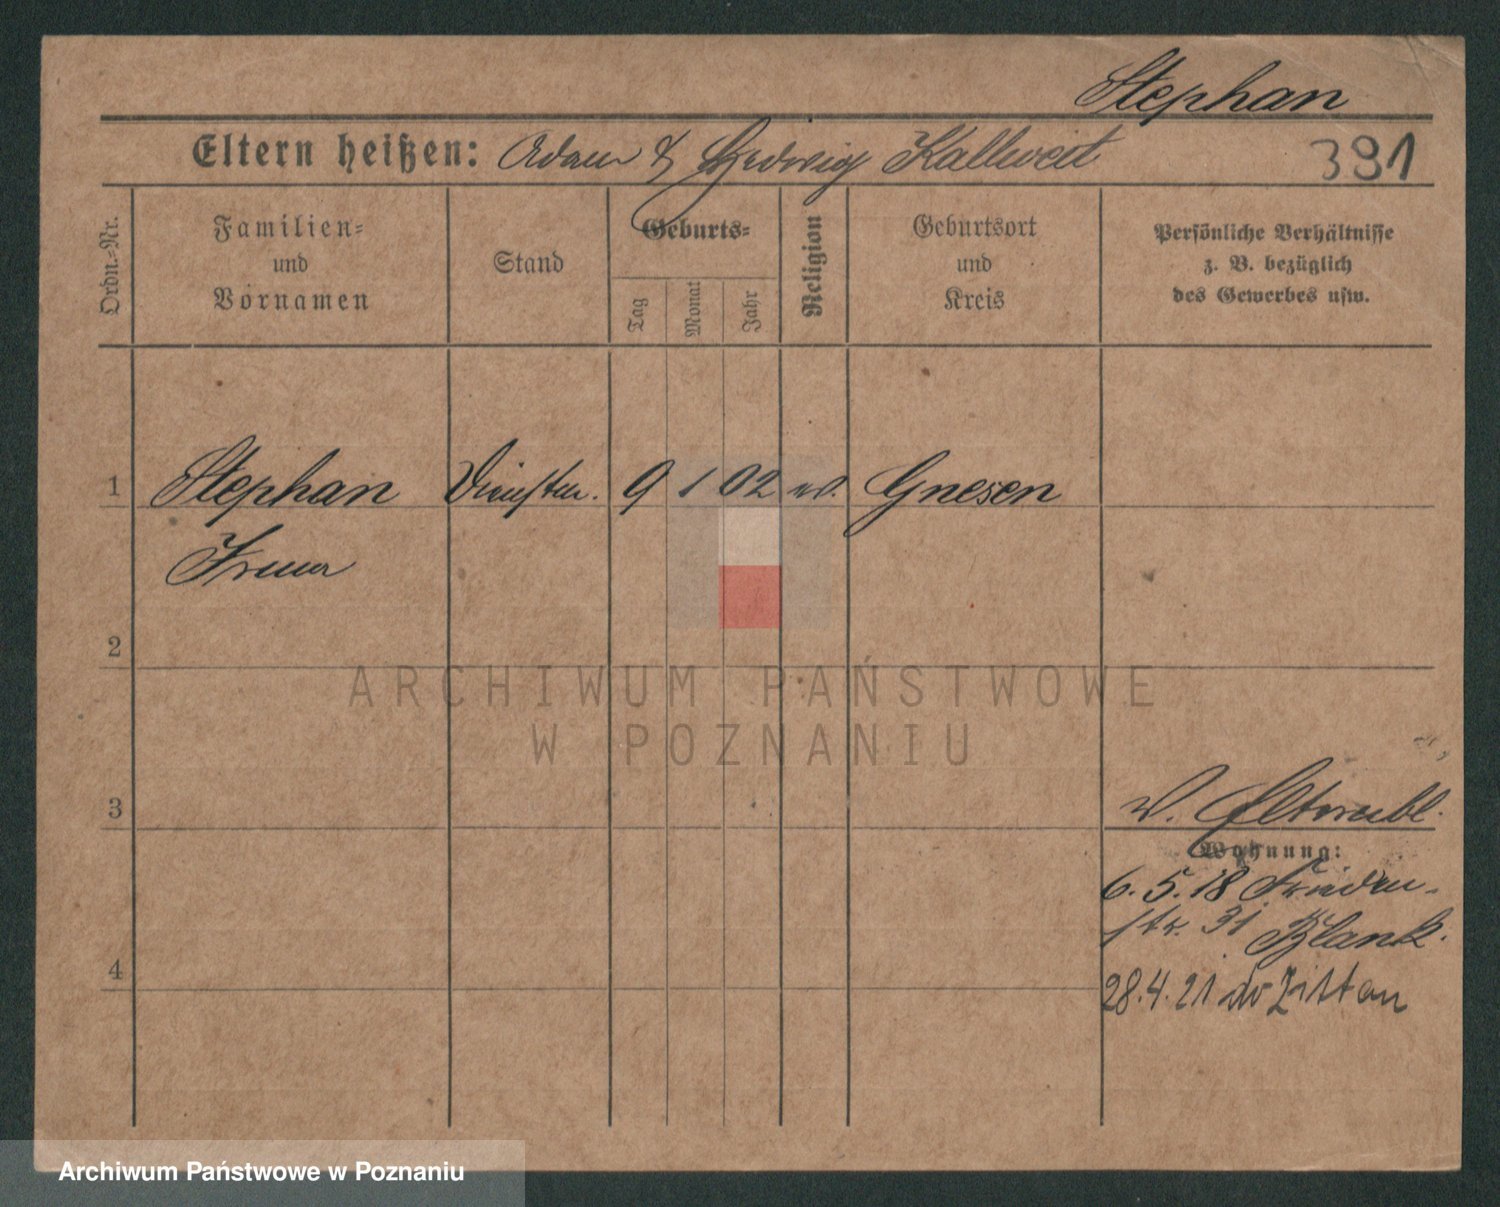 Stephan
Eltern heißen: Adam & Hedwig Kallweit
391
Ordn.-Nr.
Familien-
und
Vornamen
Stand
Geburts-
Tag
Monat
Jahr
Religion
Geburtsort
und
Kreis
Persönliche Verhältnisse
z. B. bezüglich
des Gewerbes usw.
1 Stephan 9 1 02 Gnesen
Irena
2
ARCHIWUM PAŃSTWOWE
W POZNANIU
3
Wohnung:
6.5.18 Frieden-
str. 31 Blank.
4
28.4.21 Zittau
Archiwum Państwowe w Poznaniu